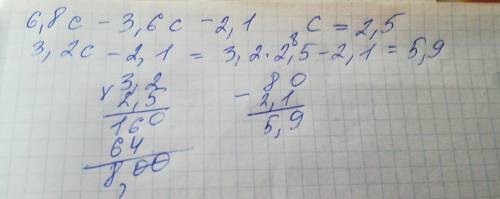 6,8c - 3,6c - 2,1    c = 2,5
3,2c - 2,1 = 3,2·2,5 - 2,1 = 5,9
8
× 3,2
2,5
160
64
8,00
- 80
2,1
5,9